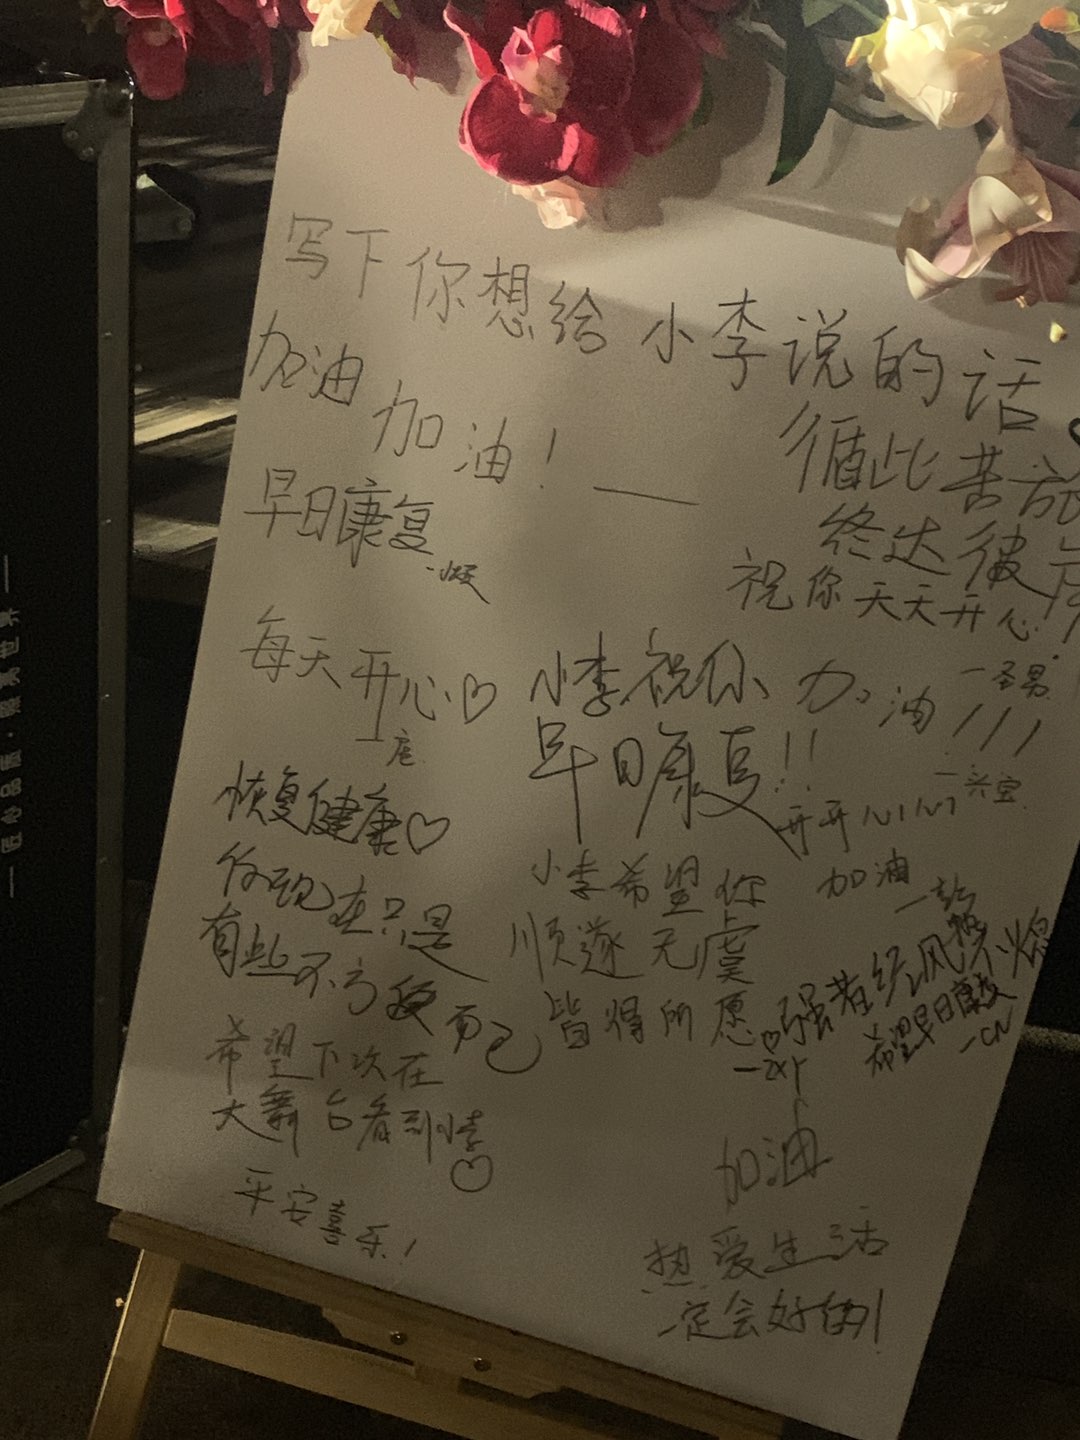 写下你想给小李说的话
加油加油！
循此苦旅
终达彼岸
早日康复
祝你天天开心
每天开心♡
小李祝你
早日康复!!
加油!!!
开开心心
加油
恢复健康♡
你现在只是
有些不方便而已
小李希望你
顺遂无虞
皆得所愿
—zxy
强者经风热不熄
希望早日康复
—CN
希望下次在
大舞台看到你
♡
平安喜乐！
加油
热爱生活
一定会好的！